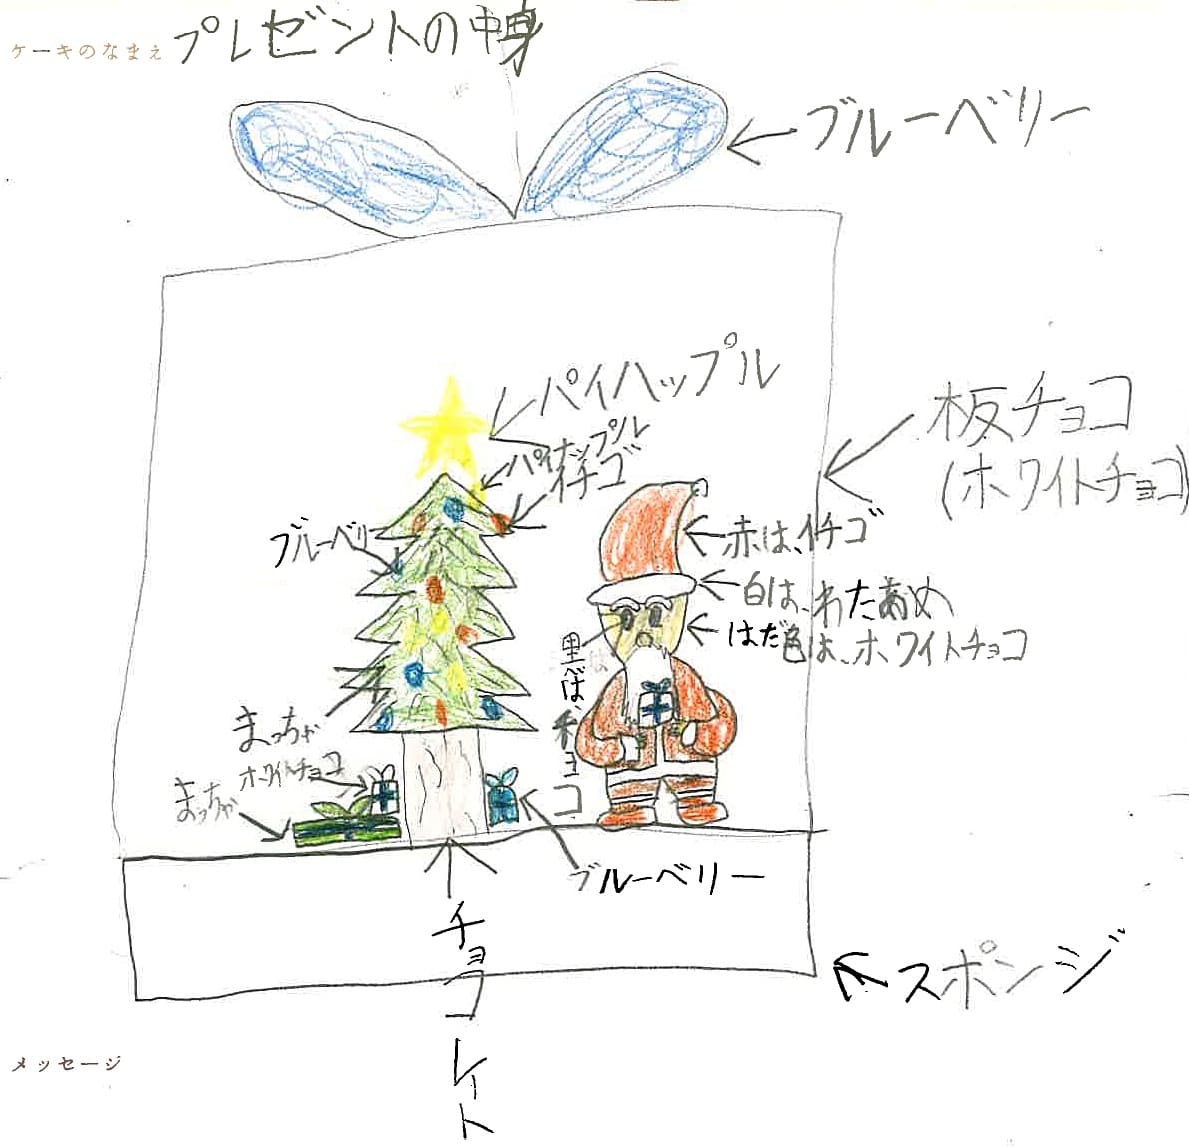 ケーキのなまえ
プレゼントの中身
ブルーベリー
パイハップル
パイナップル
イチゴ
板チョコ
(ホワイトチョコ)
ブルーベリー
赤は、イチゴ
白は、わたあめ
はだ色は、ホワイトチョコ
黒は、チョコ
まっちゃ
ホワイトチョコ
まっちゃ
ブルーベリー
チョコレイト
スポンジ
メッセージ